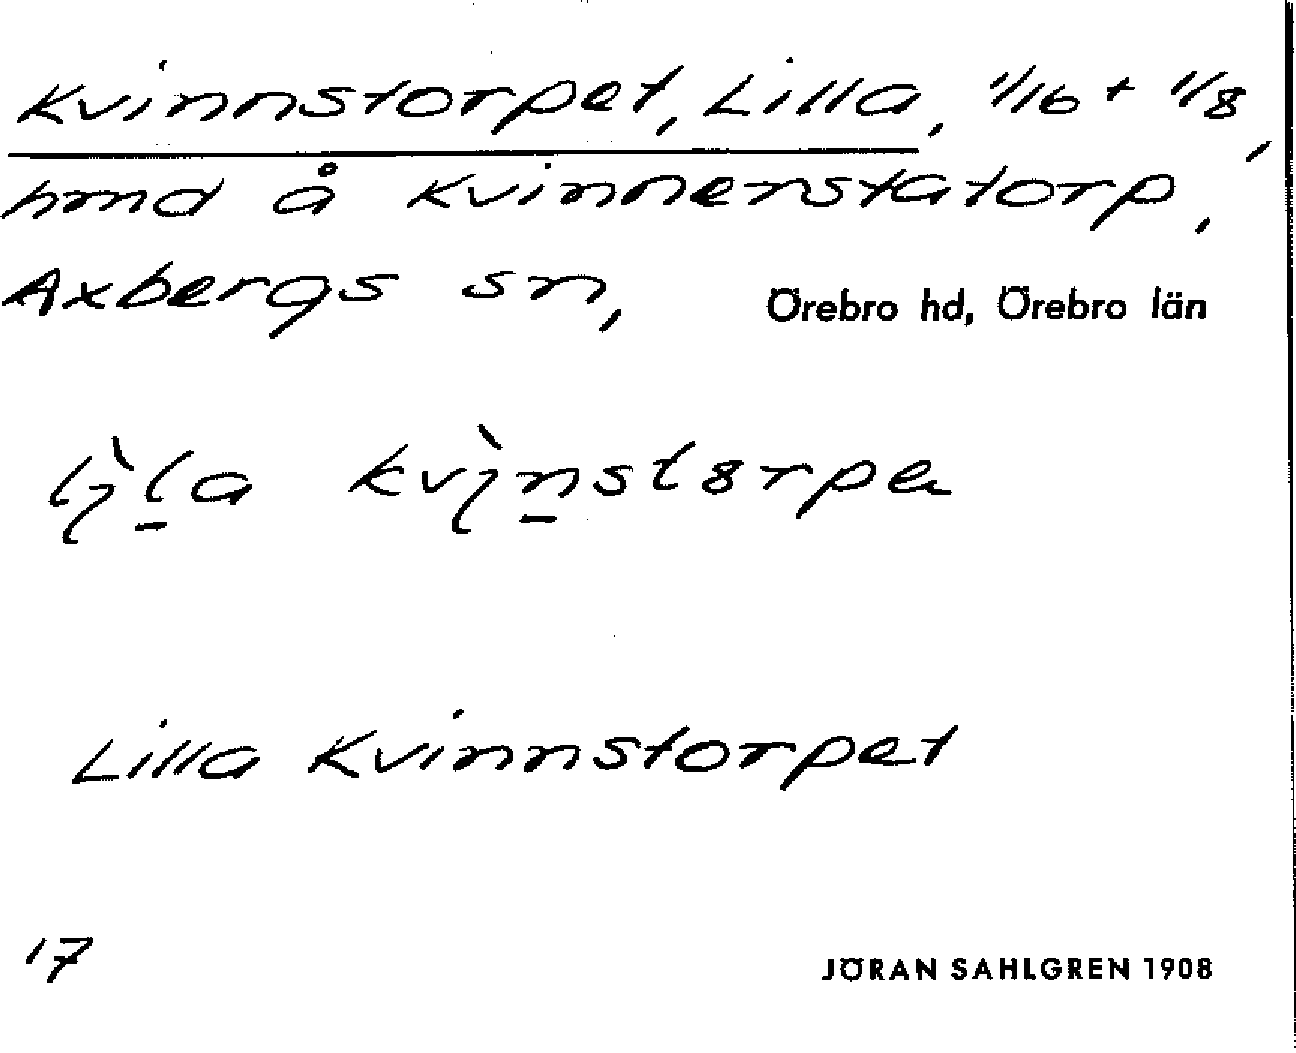 Kvinnstorpet, Lilla, 1/16 + 1/8,
hmd å Kvinnerstatorp,
Axbergs sn, Örebro hd, Örebro län
Lilla Kvinnstorpet
17 JÖRAN SAHLGREN 1908